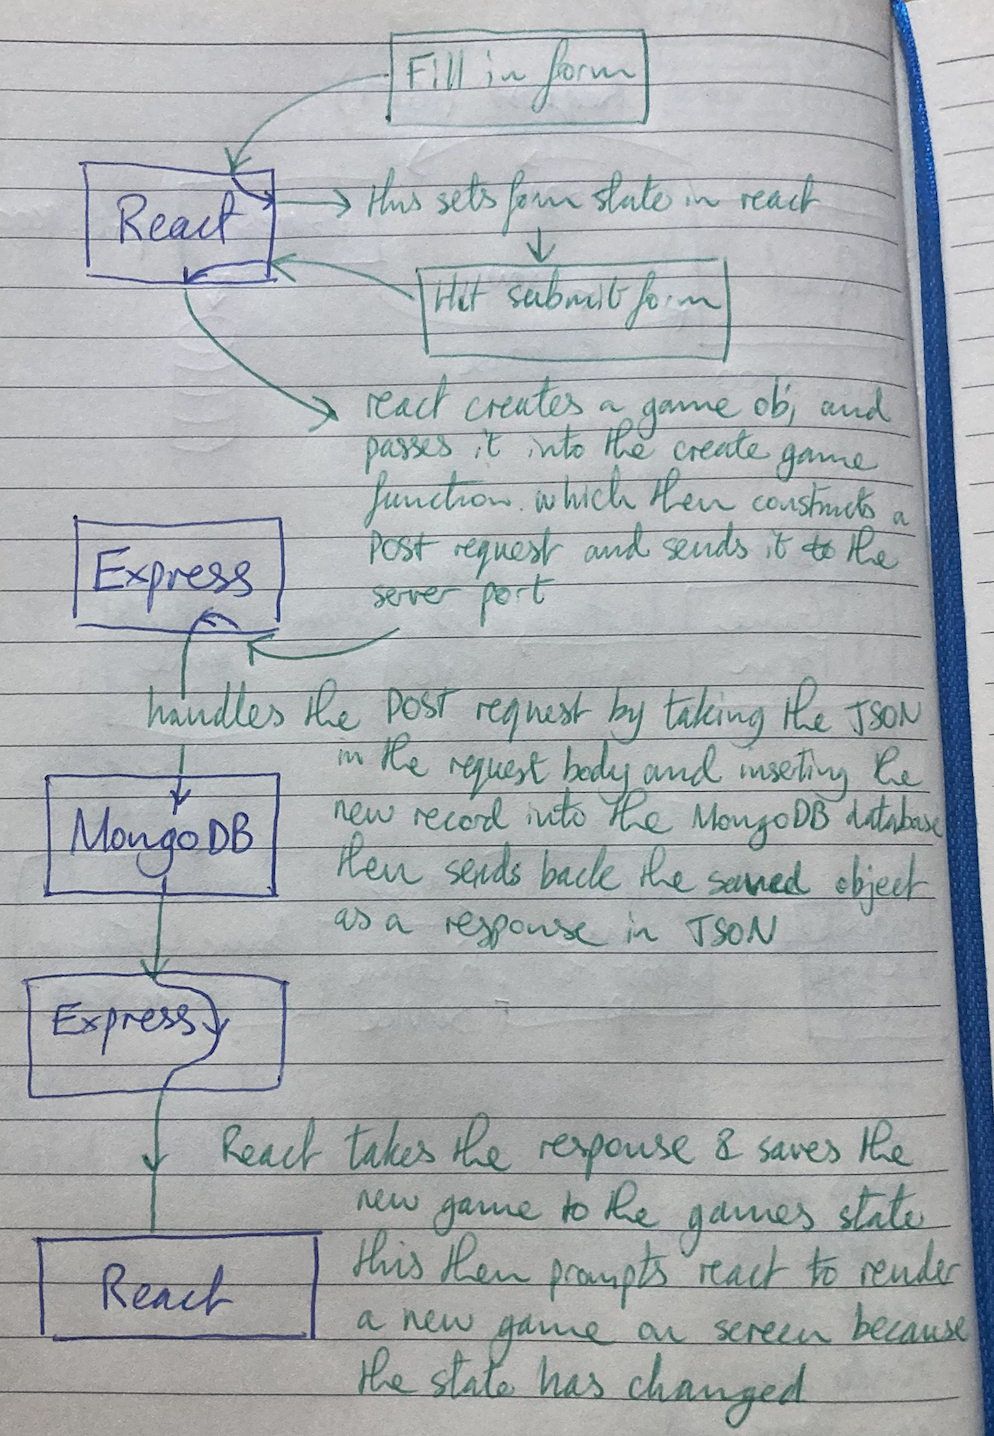 Fill in form
React
this sets form state in react
Hit submit form
react creates a game obj and
passes it into the create game
function. which then constructs a
POST request and sends it to the
server port
Express
handles the POST request by taking the JSON
in the request body and inseting the
new record into the MongoDB database
then sends back the saved object
as a response in JSON
MongoDB
Express
React takes the response & saves the
new game to the games state
this then prompts react to render
a new game on screen because
the state has changed
React